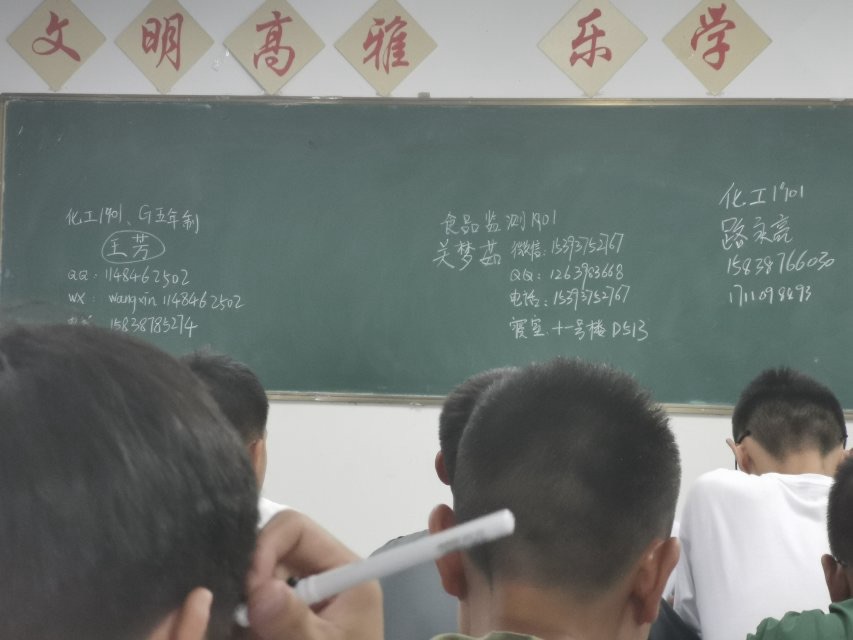 文明高雅 乐学
化工1901、G五年制
王芳
QQ：1148462502
WX：wangxin1148462502
15838785274
食品监测1901
关梦茹 微信：15393752767
QQ：1263983668
电话：15393752767
寝室：十一号楼D513
化工1901
路永亮
15838766030
1711098493